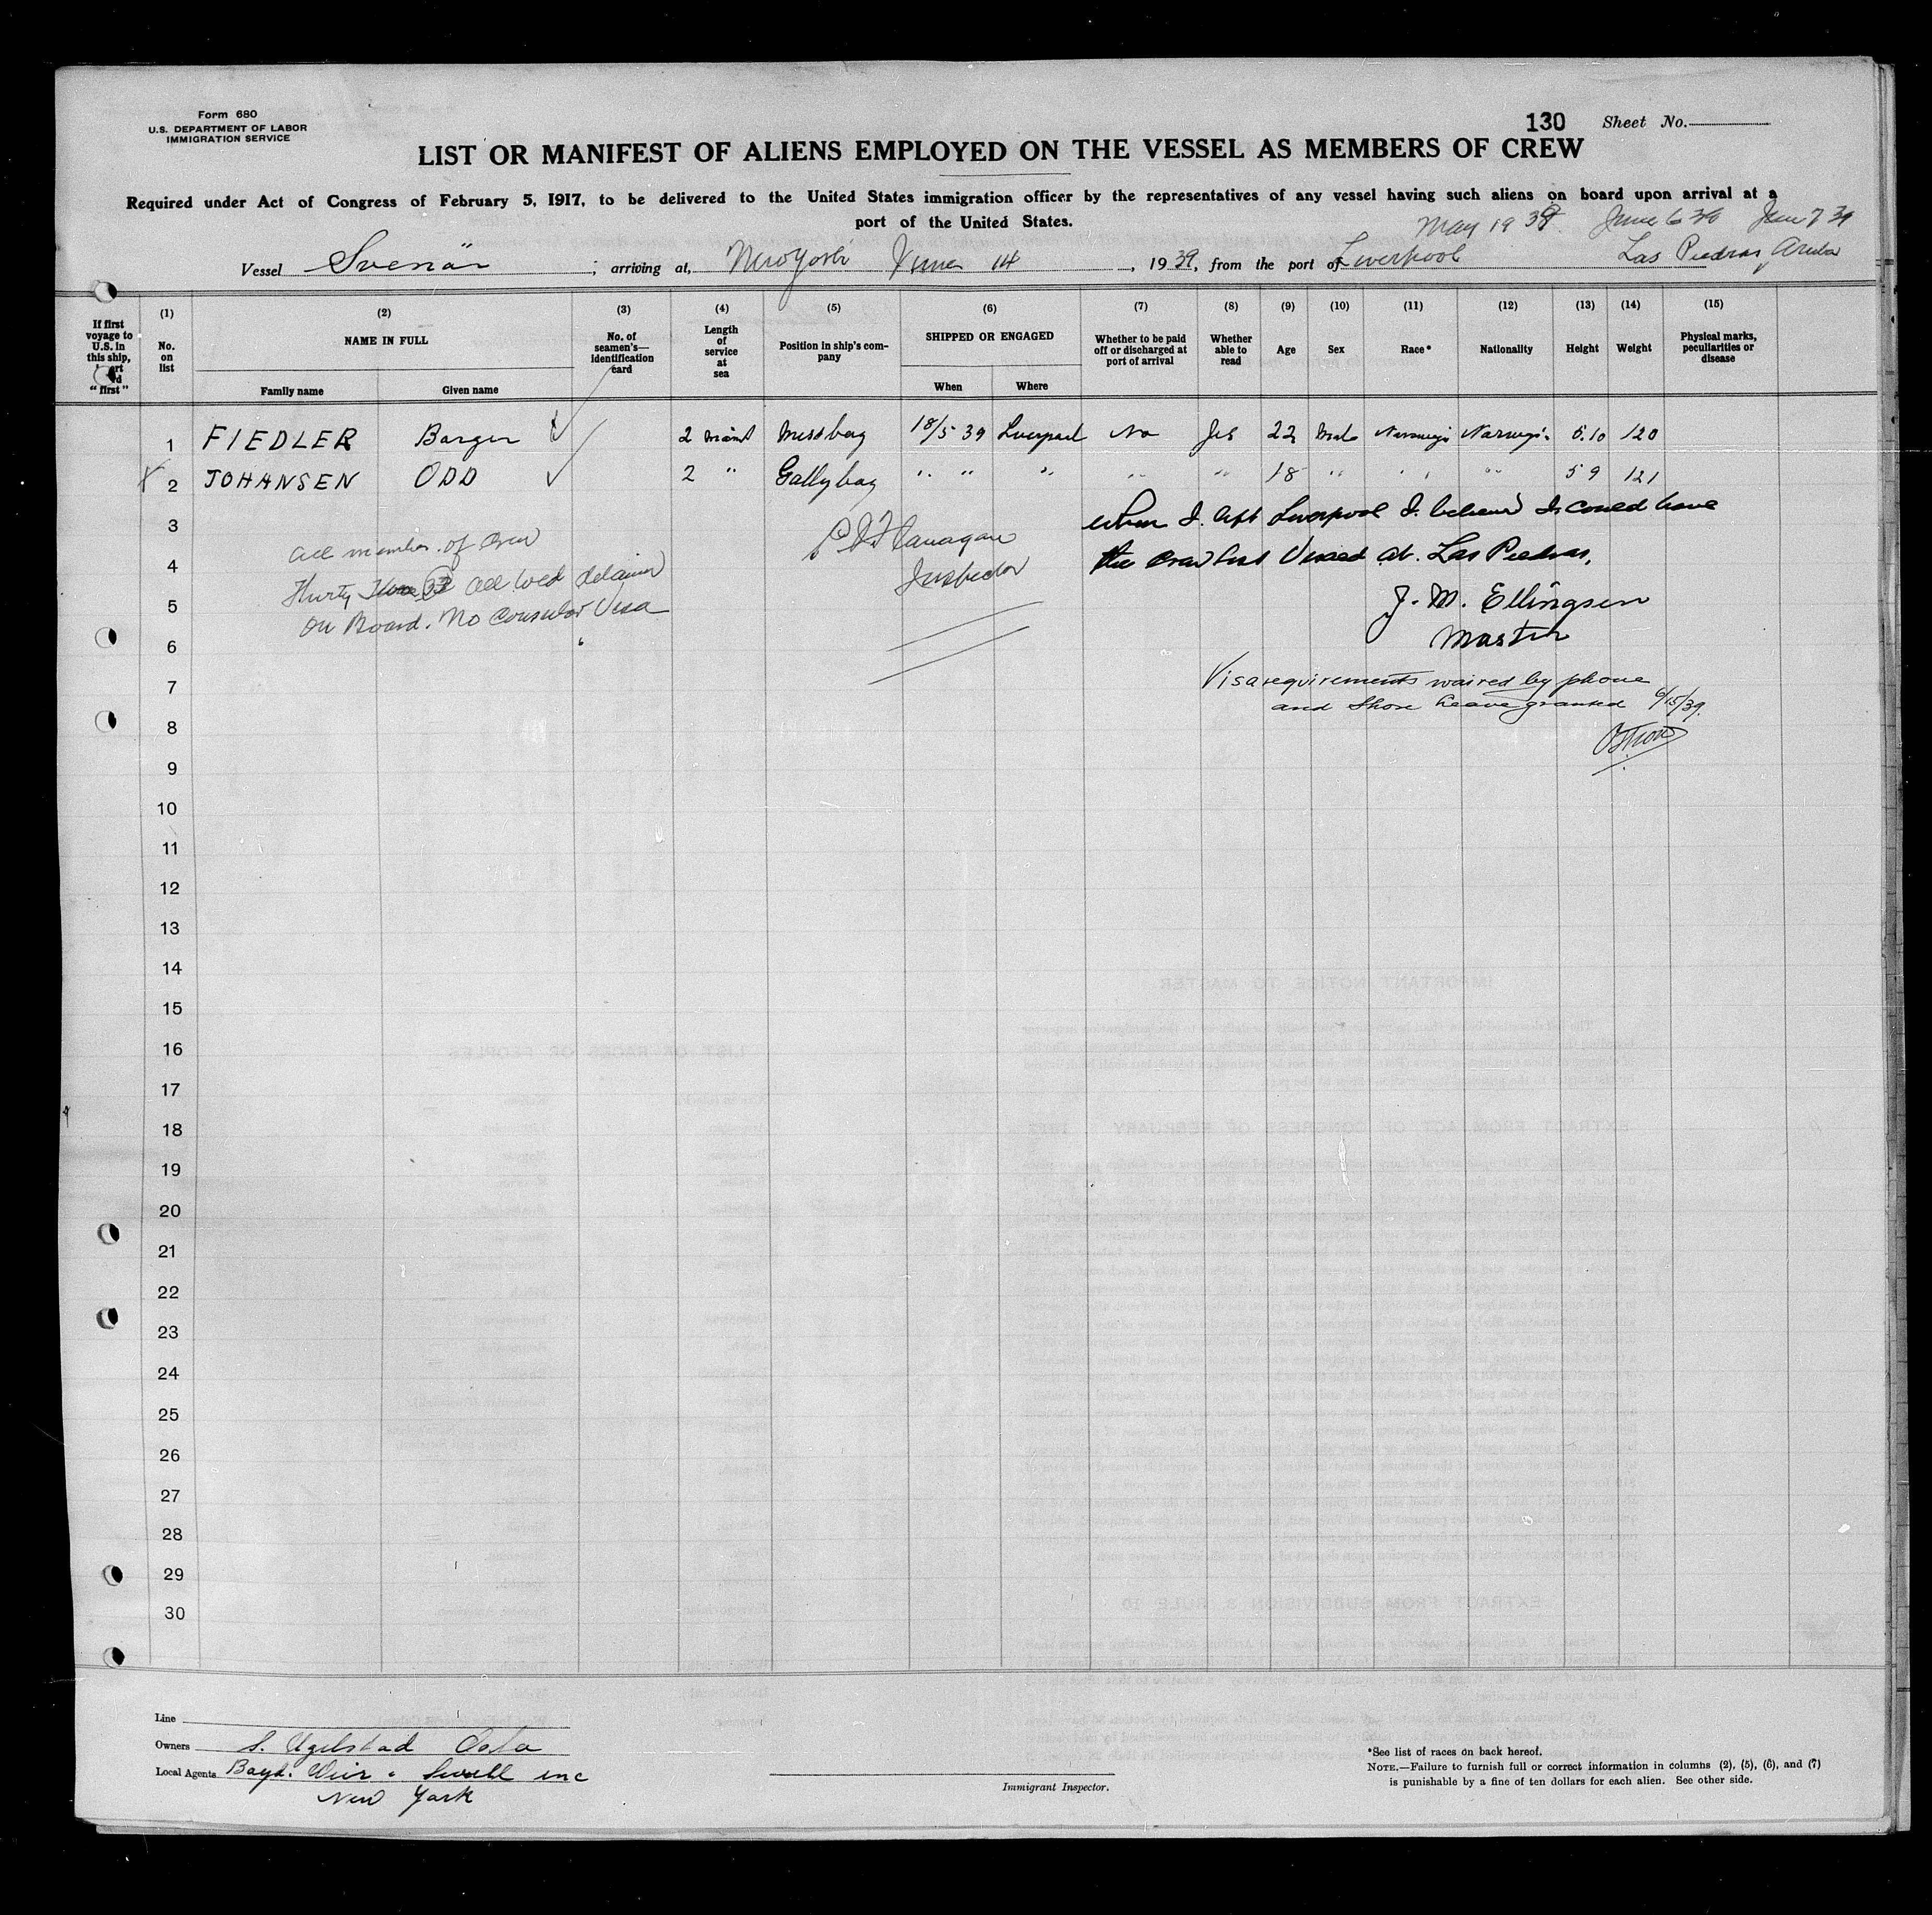 Form 680
U.S. DEPARTMENT OF LABOR
IMMIGRATION SERVICE
130 Sheet No.
LIST OR MANIFEST OF ALIENS EMPLOYED ON THE VESSEL AS MEMBERS OF CREW
Required under Act of Congress of February 5, 1917, to be delivered to the United States immigration officer by the representatives of any vessel having such aliens on board upon arrival at a
port of the United States.
May 19 39. June 6 39 June 7 39
Vessel Svenör ; arriving at, New York June 14, 1939, from the port of Liverpool Las Piedras Aruba
If first voyage to U.S. in this ship, "first"
(1) No. on list
(2) NAME IN FULL
Family name Given name
(3) No. of seamen's—identification card
(4) Length of service at sea
(5) Position in ship's company
(6) SHIPPED OR ENGAGED
When Where
(7) Whether to be paid off or discharged at port of arrival
(8) Whether able to read
(9) Age
(10) Sex
(11) Race*
(12) Nationality
(13) Height
(14) Weight
(15) Physical marks, peculiarities or disease
1 FIEDLER Barger 2 Messboy 18/5 39 Liverpool No Yes 22 Male 5.10 120
2 JOHANSEN ODD 2 " Gallyboy " " " " " 18 " " " 5 9 121
3 When I left Liverpool I believed I could have
4 the Crewlist Visaed at Las Piedras.
J. M. Ellingsen
Master
All member of Crew
Thirty 32 all
On Board. No Consular Visa
P J Flanagan
Inspector
5
6
7 Visa requirements waived by phone
and Shore Leave granted 6/15/39.
8
9
10
11
12
13
14
15
16
17
18
19
20
21
22
23
24
25
26
27
28
29
30
Line
Owners S. Ugelstad Oslo
Local Agents Boyd. Weir & Sewell inc
New York
Immigrant Inspector.
*See list of races on back hereof.
NOTE.—Failure to furnish full or correct information in columns (2), (5), (6), and (7)
is punishable by a fine of ten dollars for each alien. See other side.